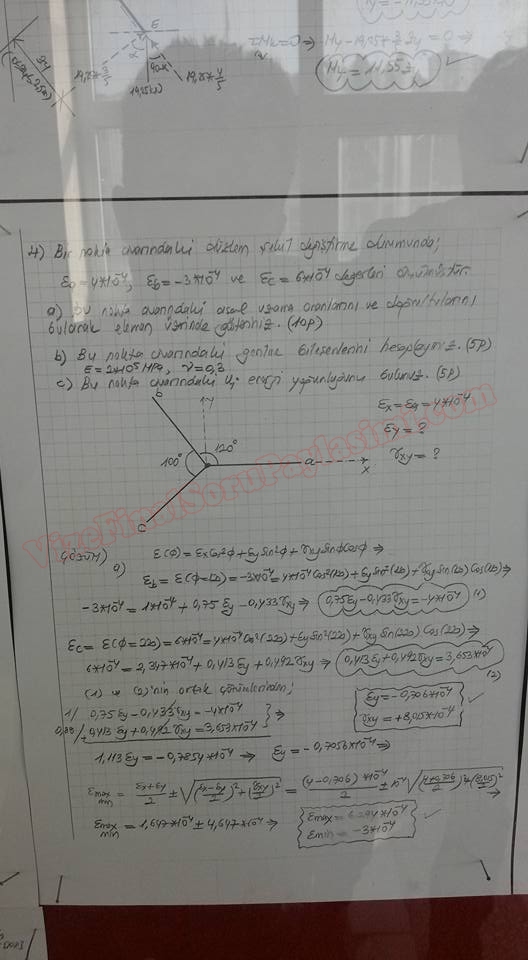 E
α
90-α
19,25*3/5
19,25kN
19,25*4/5
ΣMk=0 ⇒ My-19,25*3/5*3y = 0 ⇒
My = 11,55*3y ✓
4) Bir nokta civarındaki düzlem şekil değiştirme durumunda;
εa=4*10⁻⁴, εb=-3*10⁻⁴ ve εc=6*10⁻⁴ değerleri ölçülmüştür.
a) Bu nokta civarındaki asal uzama oranlarını ve doğrultularını
bularak eleman üzerinde gösteriniz. (10p)
b) Bu nokta civarındaki gerilme bileşenlerini hesaplayınız. (5p)
E=2*10⁵ MPa, ν=0,3
c) Bu nokta civarındaki iç enerji yoğunluğunu bulunuz. (5p)
b
y
120°
100°
a
x
c
εx=εa=4*10⁻⁴
εy=?
γxy=?
VizeFinalSoruPaylasimi.com
ÇÖZÜM)
a)
ε(φ)=εxCos²φ+εySin²φ+γxySinφCosφ ⇒
εb=ε(φ=120)=-3*10⁻⁴=4*10⁻⁴Cos²(120)+εySin²(120)+γxySin(120)Cos(120)⇒
-3*10⁻⁴=1*10⁻⁴+0,75εy-0,433γxy ⇒ 0,75εy-0,433γxy=-4*10⁻⁴ (1)
εc=ε(φ=220)=6*10⁻⁴=4*10⁻⁴Cos²(220)+εySin²(220)+γxySin(220)Cos(220)
6*10⁻⁴=2,347*10⁻⁴+0,413εy+0,492γxy ⇒ 0,413εy+0,492γxy=3,653*10⁻⁴ (2)
(1) ve (2)'nin ortak çözümlerinden;
1/ 0,75εy-0,433γxy=-4*10⁻⁴
0,88/+0,413εy+0,492γxy=3,653*10⁻⁴ ⇒
εy=-0,706*10⁻⁴ ✓
γxy=+8,015*10⁻⁴
1,113εy=-0,7854*10⁻⁴ ⇒ εy=-0,7056*10⁻⁴ ⇒
εmax/min=(εx+εy)/2±√((εx-εy)/2)²+(γxy/2)²=(4-0,706)*10⁻⁴/2±10⁻⁴√((4+0,706)/2)²+(8,015/2)² ⇒
εmax/min=1,647*10⁻⁴±4,647*10⁻⁴ ⇒
εmax=6,294*10⁻⁴ ✓
εmin=-3*10⁻⁴